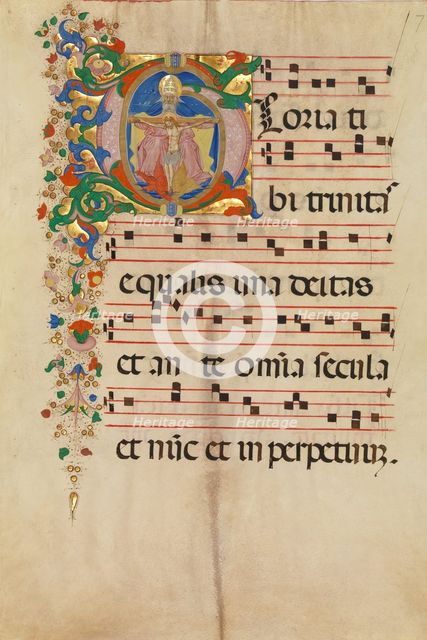 7
Gloria ti
bi trinitas
equalis una deitas
et an te om̄ia secula
et nūc et in perpetuuz.
Heritage Heritage
Heritage Heritage
Heritage Heritage